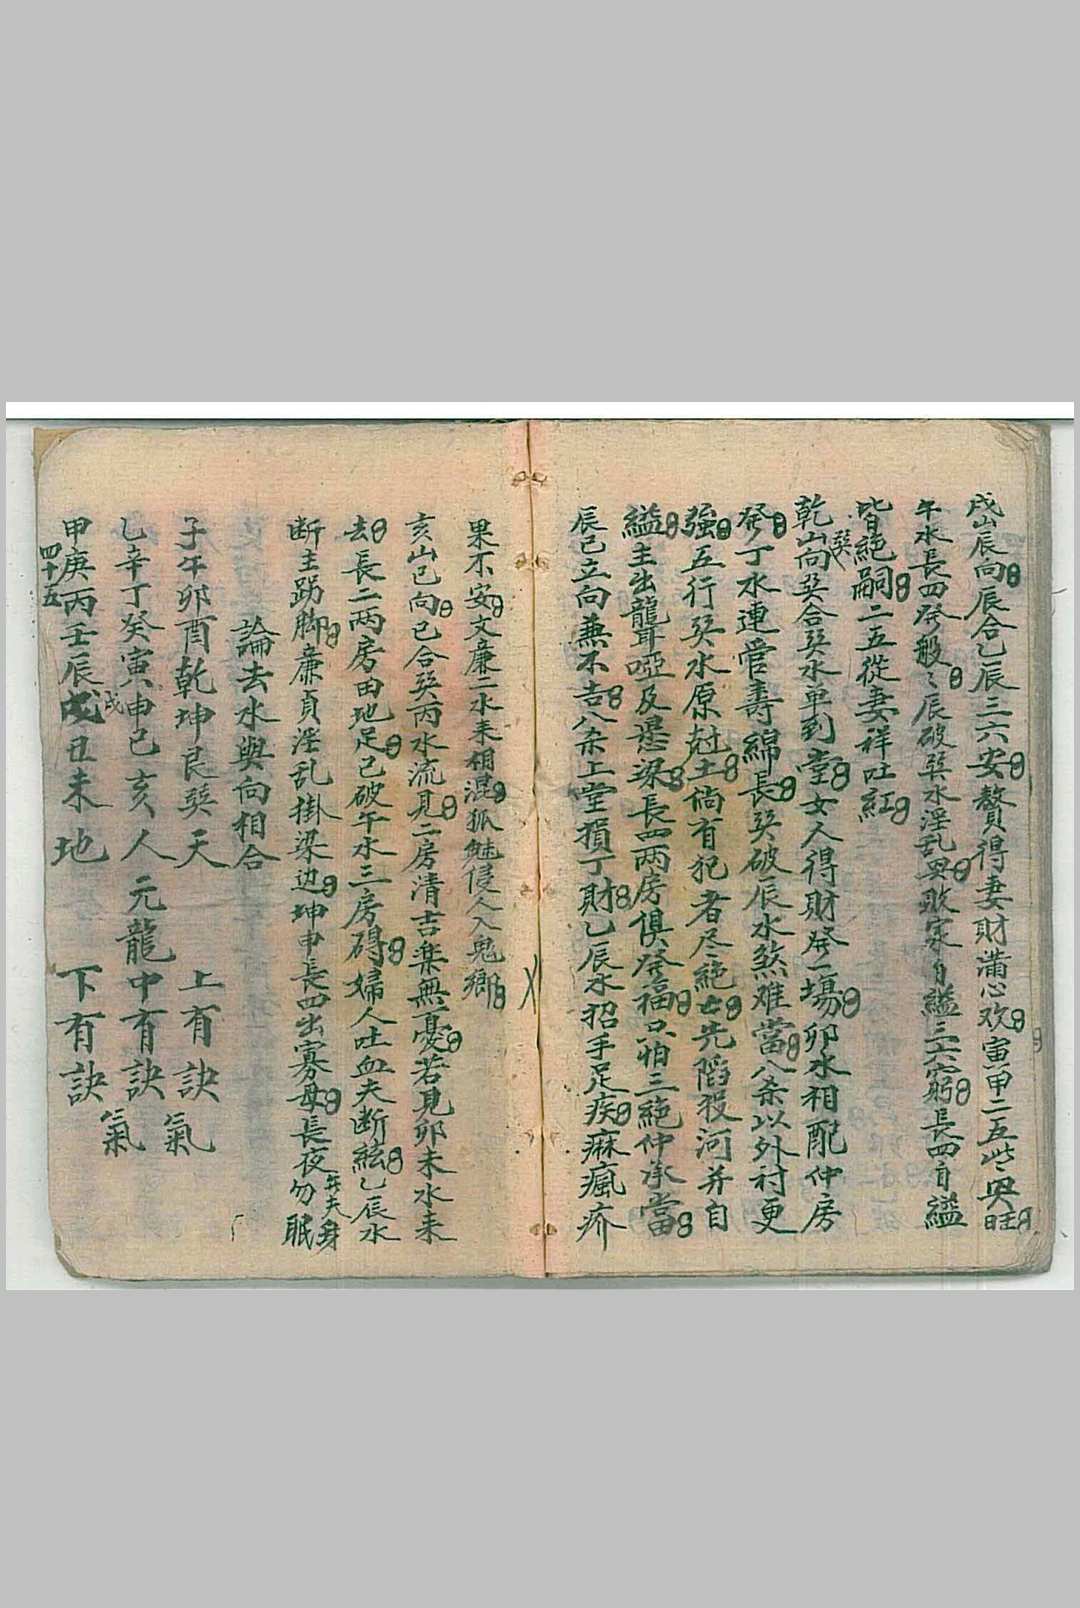 戌山辰向辰合乙辰三六安贅得妻財滿心欢寅甲二五些興旺
午水長四發般〻辰破巽水淫乱興敗家自縊三六窮長四自縊
皆絕嗣二五從妻祥吐紅
乾山向巽合巽水单到堂女人得財發一場卯水相配仲房
巽
發丁水連管壽綿長巽破辰水煞难當八杀以外討更
強五行巽水原尅土倘有犯者尽絕亡先陷殺河并自
縊主出聾啞及懸梁長四兩房俱發福只怕三絕仲承當
辰巳立向兼不吉八杀上堂損丁財乙辰水招手足疾麻瘋疥
果不安文廉一水来相混狐魅侵人入鬼鄉
亥山巳向巳合巽丙水流見二房清吉楽無憂若見卯未水来
去長二兩房田地足巳破午水三房碍婦人吐血夫断絃乙辰水
断主跷脚廉貞淫乱掛梁边坤申長四出寡母長夜勿眠
年夫身
論去水與向相合
子午卯酉乾坤艮巽天 上有訣
氣
乙辛丁癸寅申巳亥人元龍中有訣
氣
甲庚丙壬辰戌丑未地 下有訣
戌
四十五